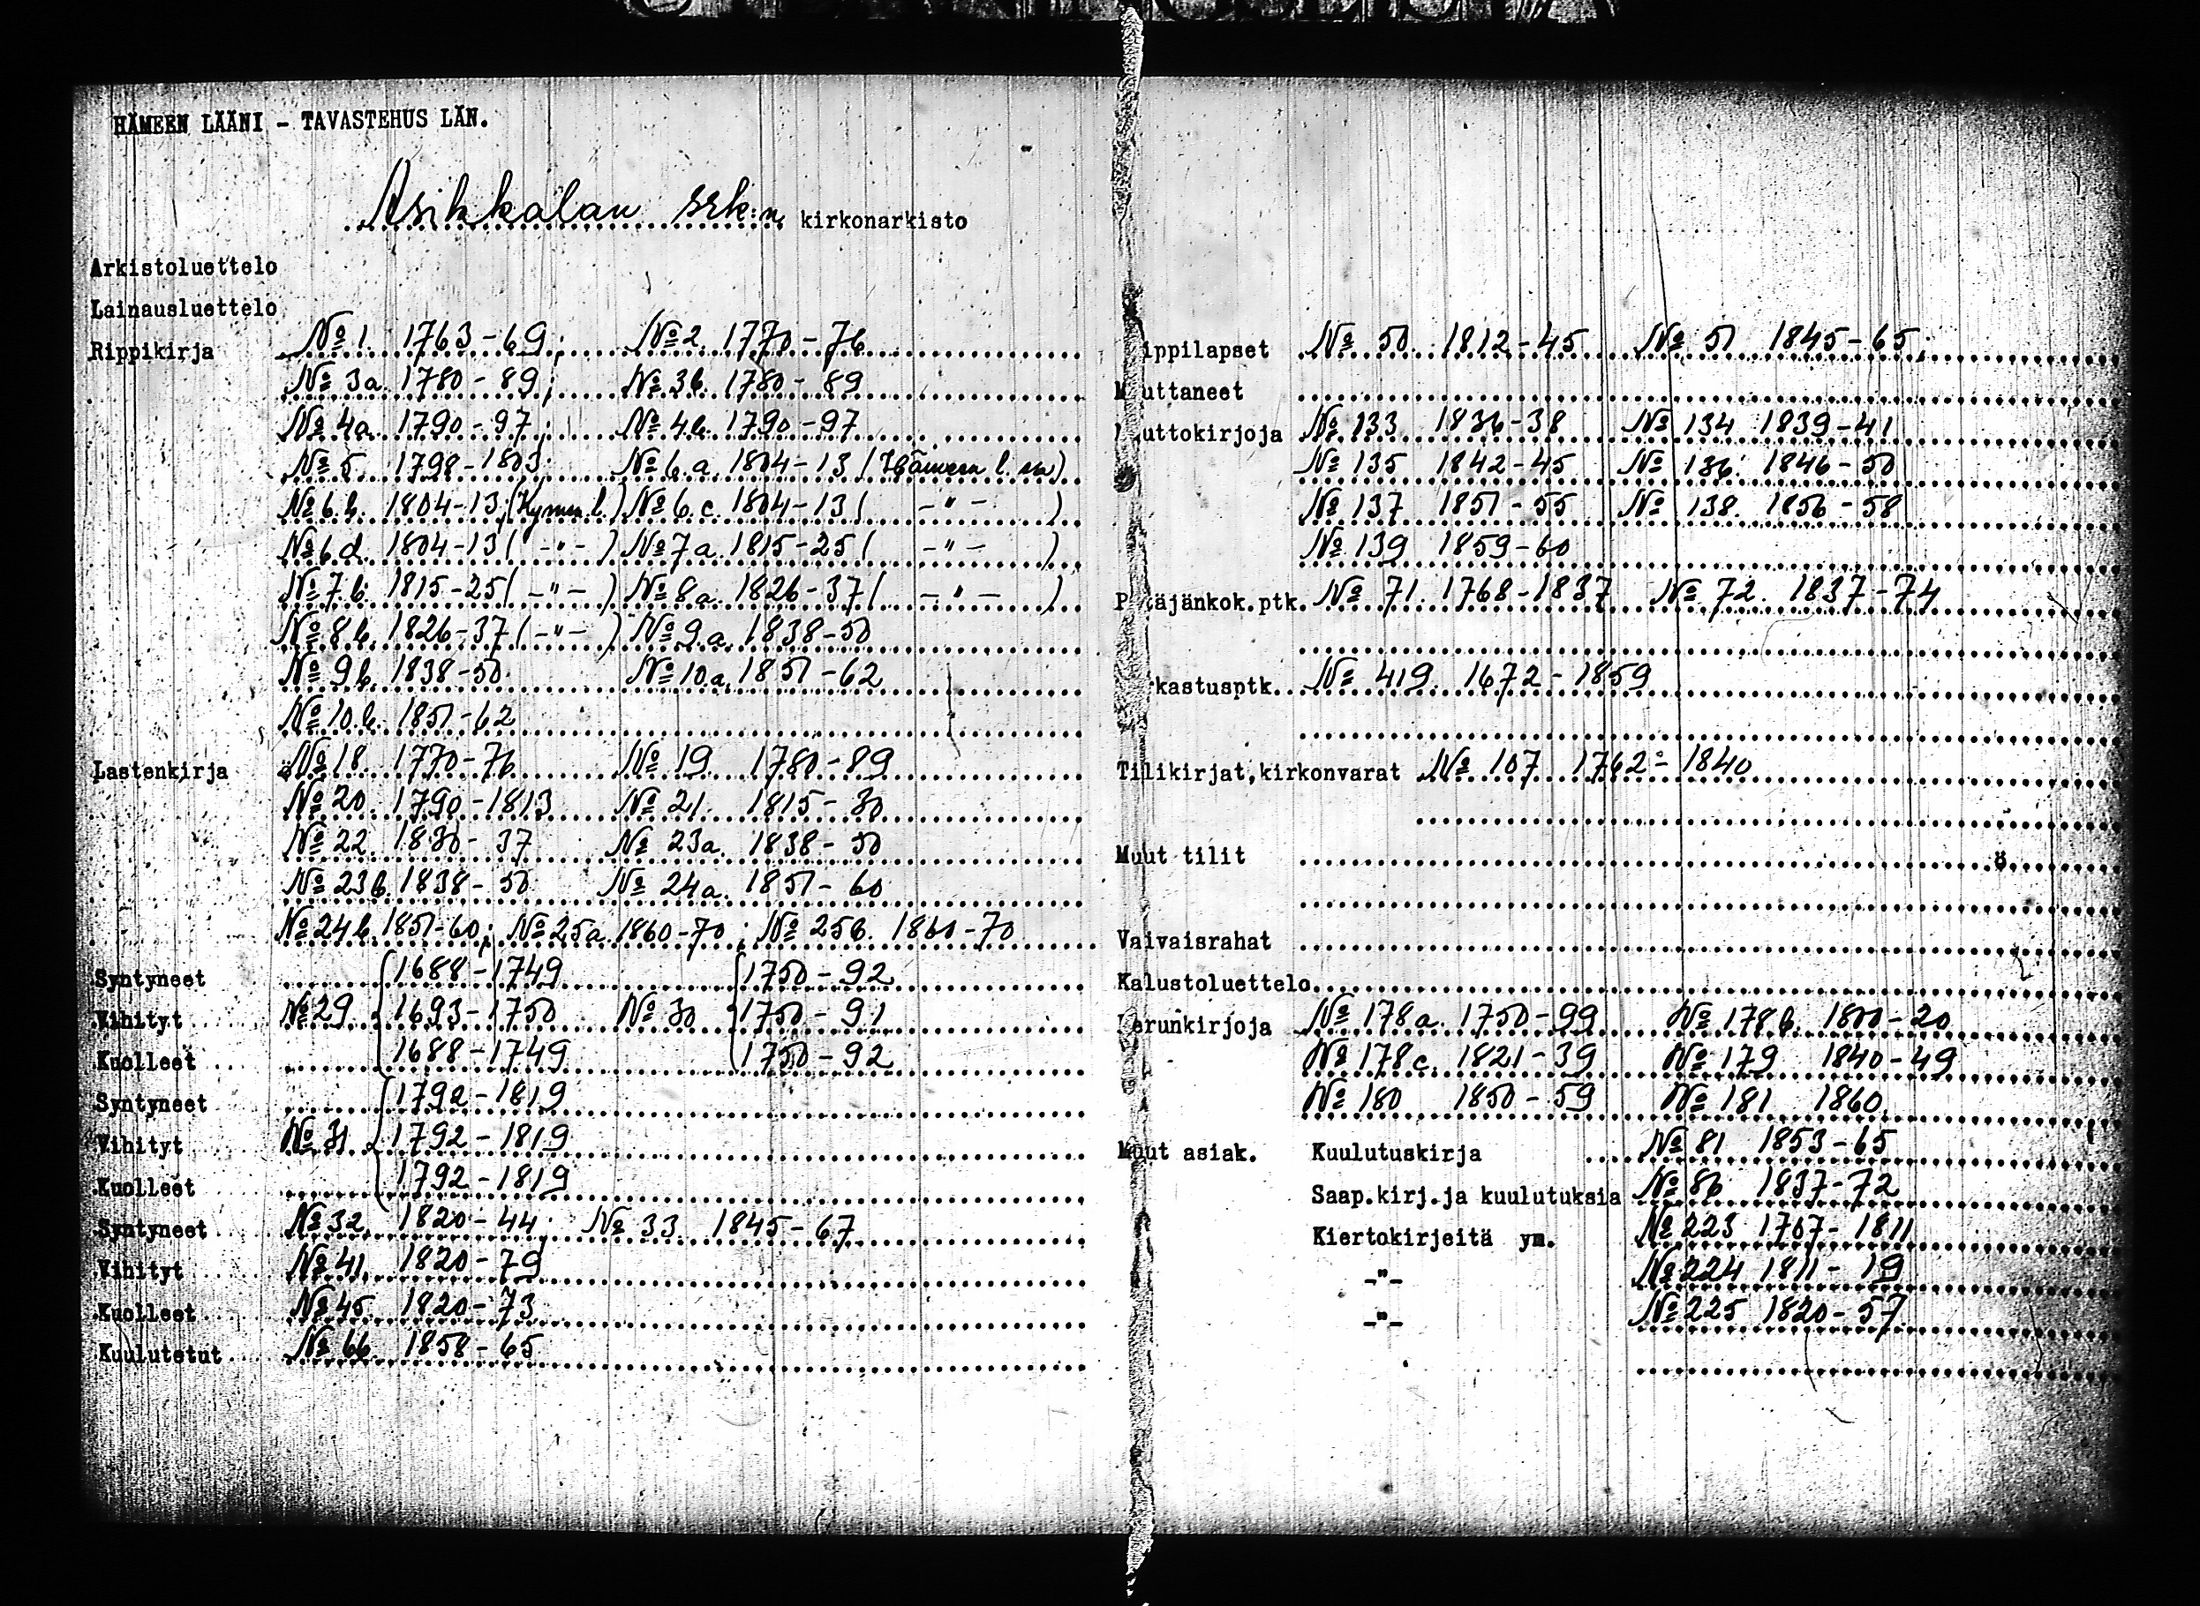 HÄMEEN LÄÄNI - TAVASTEHUS LÄN.
Asikkalan srk:n kirkonarkisto
Arkistoluettelo
Lainausluettelo
Rippikirja No 1. 1763-69; No 2. 1770-76
No 3a. 1780-89; No 3b. 1780-89
No 4a. 1790-97; No 4b. 1790-97
No 5. 1798-1803; No 6.a. 1804-13 (Hämeen l.
No 6.b. 1804-13 (Kymen l.) No 6.c. 1804-13 ( -"- )
No 6.d. 1804-13 ( -"- ) No 7a. 1815-25 ( -"- )
No 7.b. 1815-25 ( -"- ) No 8a. 1826-37 ( -"- )
No 8.b. 1826-37 ( -"- ) No 9.a. 1838-50
No 9b. 1838-50 No 10.a. 1851-62
No 10.b. 1851-62
Lastenkirja No 18. 1770-76 No 19 1780-89
No 20. 1790-1813 No 21. 1815-30
No 22. 1830-37 No 23a. 1838-50
No 23b. 1838-50 No 24a. 1851-60
No 24b. 1851-60; No 25a. 1860-70; No 25b. 1860-70
Syntyneet 1688-1749 1750-92
Vihityt No 29. 1693-1750 No 30 1750-91
Kuolleet 1688-1749 1750-92
Syntyneet 1792-1819
Vihityt No 31. 1792-1819
Kuolleet 1792-1819
Syntyneet No 32. 1820-44; No 33. 1845-67
Vihityt No 41. 1820-79
Kuolleet No 45. 1820-73
Kuulutetut No 66. 1858-65
ippilapset No 50. 1812-45 No 51 1845-65;
Muuttaneet
uttokirjoja No 133 1836-38 No 134 1839-41
No 135 1842-45 No 136. 1846-50
No 137 1851-55 No 138. 1856-58
No 139 1859-60
Pitäjänkok.ptk. No 71. 1768-1837 No 72. 1837-74
kastusptk. No 419. 1672-1859
Tilikirjat,kirkonvarat No 107 1762-1840
Muut tilit
Vaivaisrahat
Kalustoluettelo
Perunkirjoja No 178a. 1750-99 No 178b. 1800-20
No 178c. 1821-39 No 179 1840-49
No 180 1850-59 No 181 1860
Muut asiak. Kuulutuskirja No 81 1853-65
Saap.kirj.ja kuulutuksia No 86 1837-72
Kiertokirjeitä ym. No 223 1707-1811
-"- No 224 1811-19
-"- No 225 1820-57